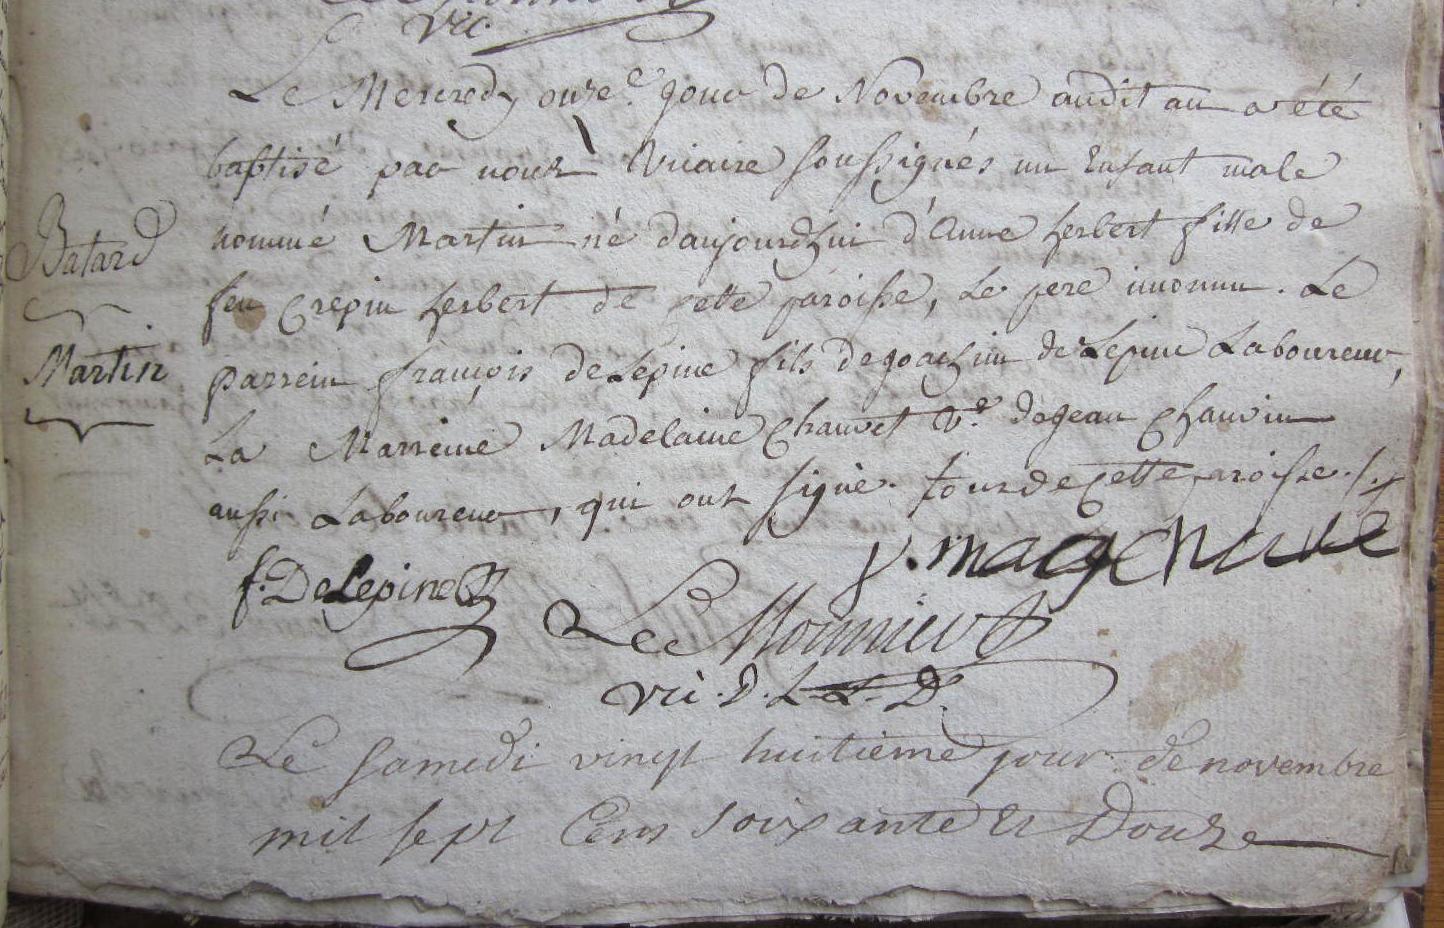 Vic.
Le Mercredy onze.e jour de Novembre audit an a été
baptisé par nous Vicaire soussignés un Enfant male
Batard
nommé Martin né d'aujourdhui d'Anne herbert fille de
feu Crepin herbert de cette paroisse, Le pere inconnu. Le
Martin
parrein françois DeLépine fils de Joachim de Lepine Laboureur,
La Marreine Madelaine Chauvet V.e de jean Chauvin
aussi Laboureur, qui ont signé. tous de cette paroisse ./.
f. DeLepine
Le Monnier
Vic. D. L. L. D.
Le samedi vingt huitieme jour de novembre
mil sept Cens soixante et Douze